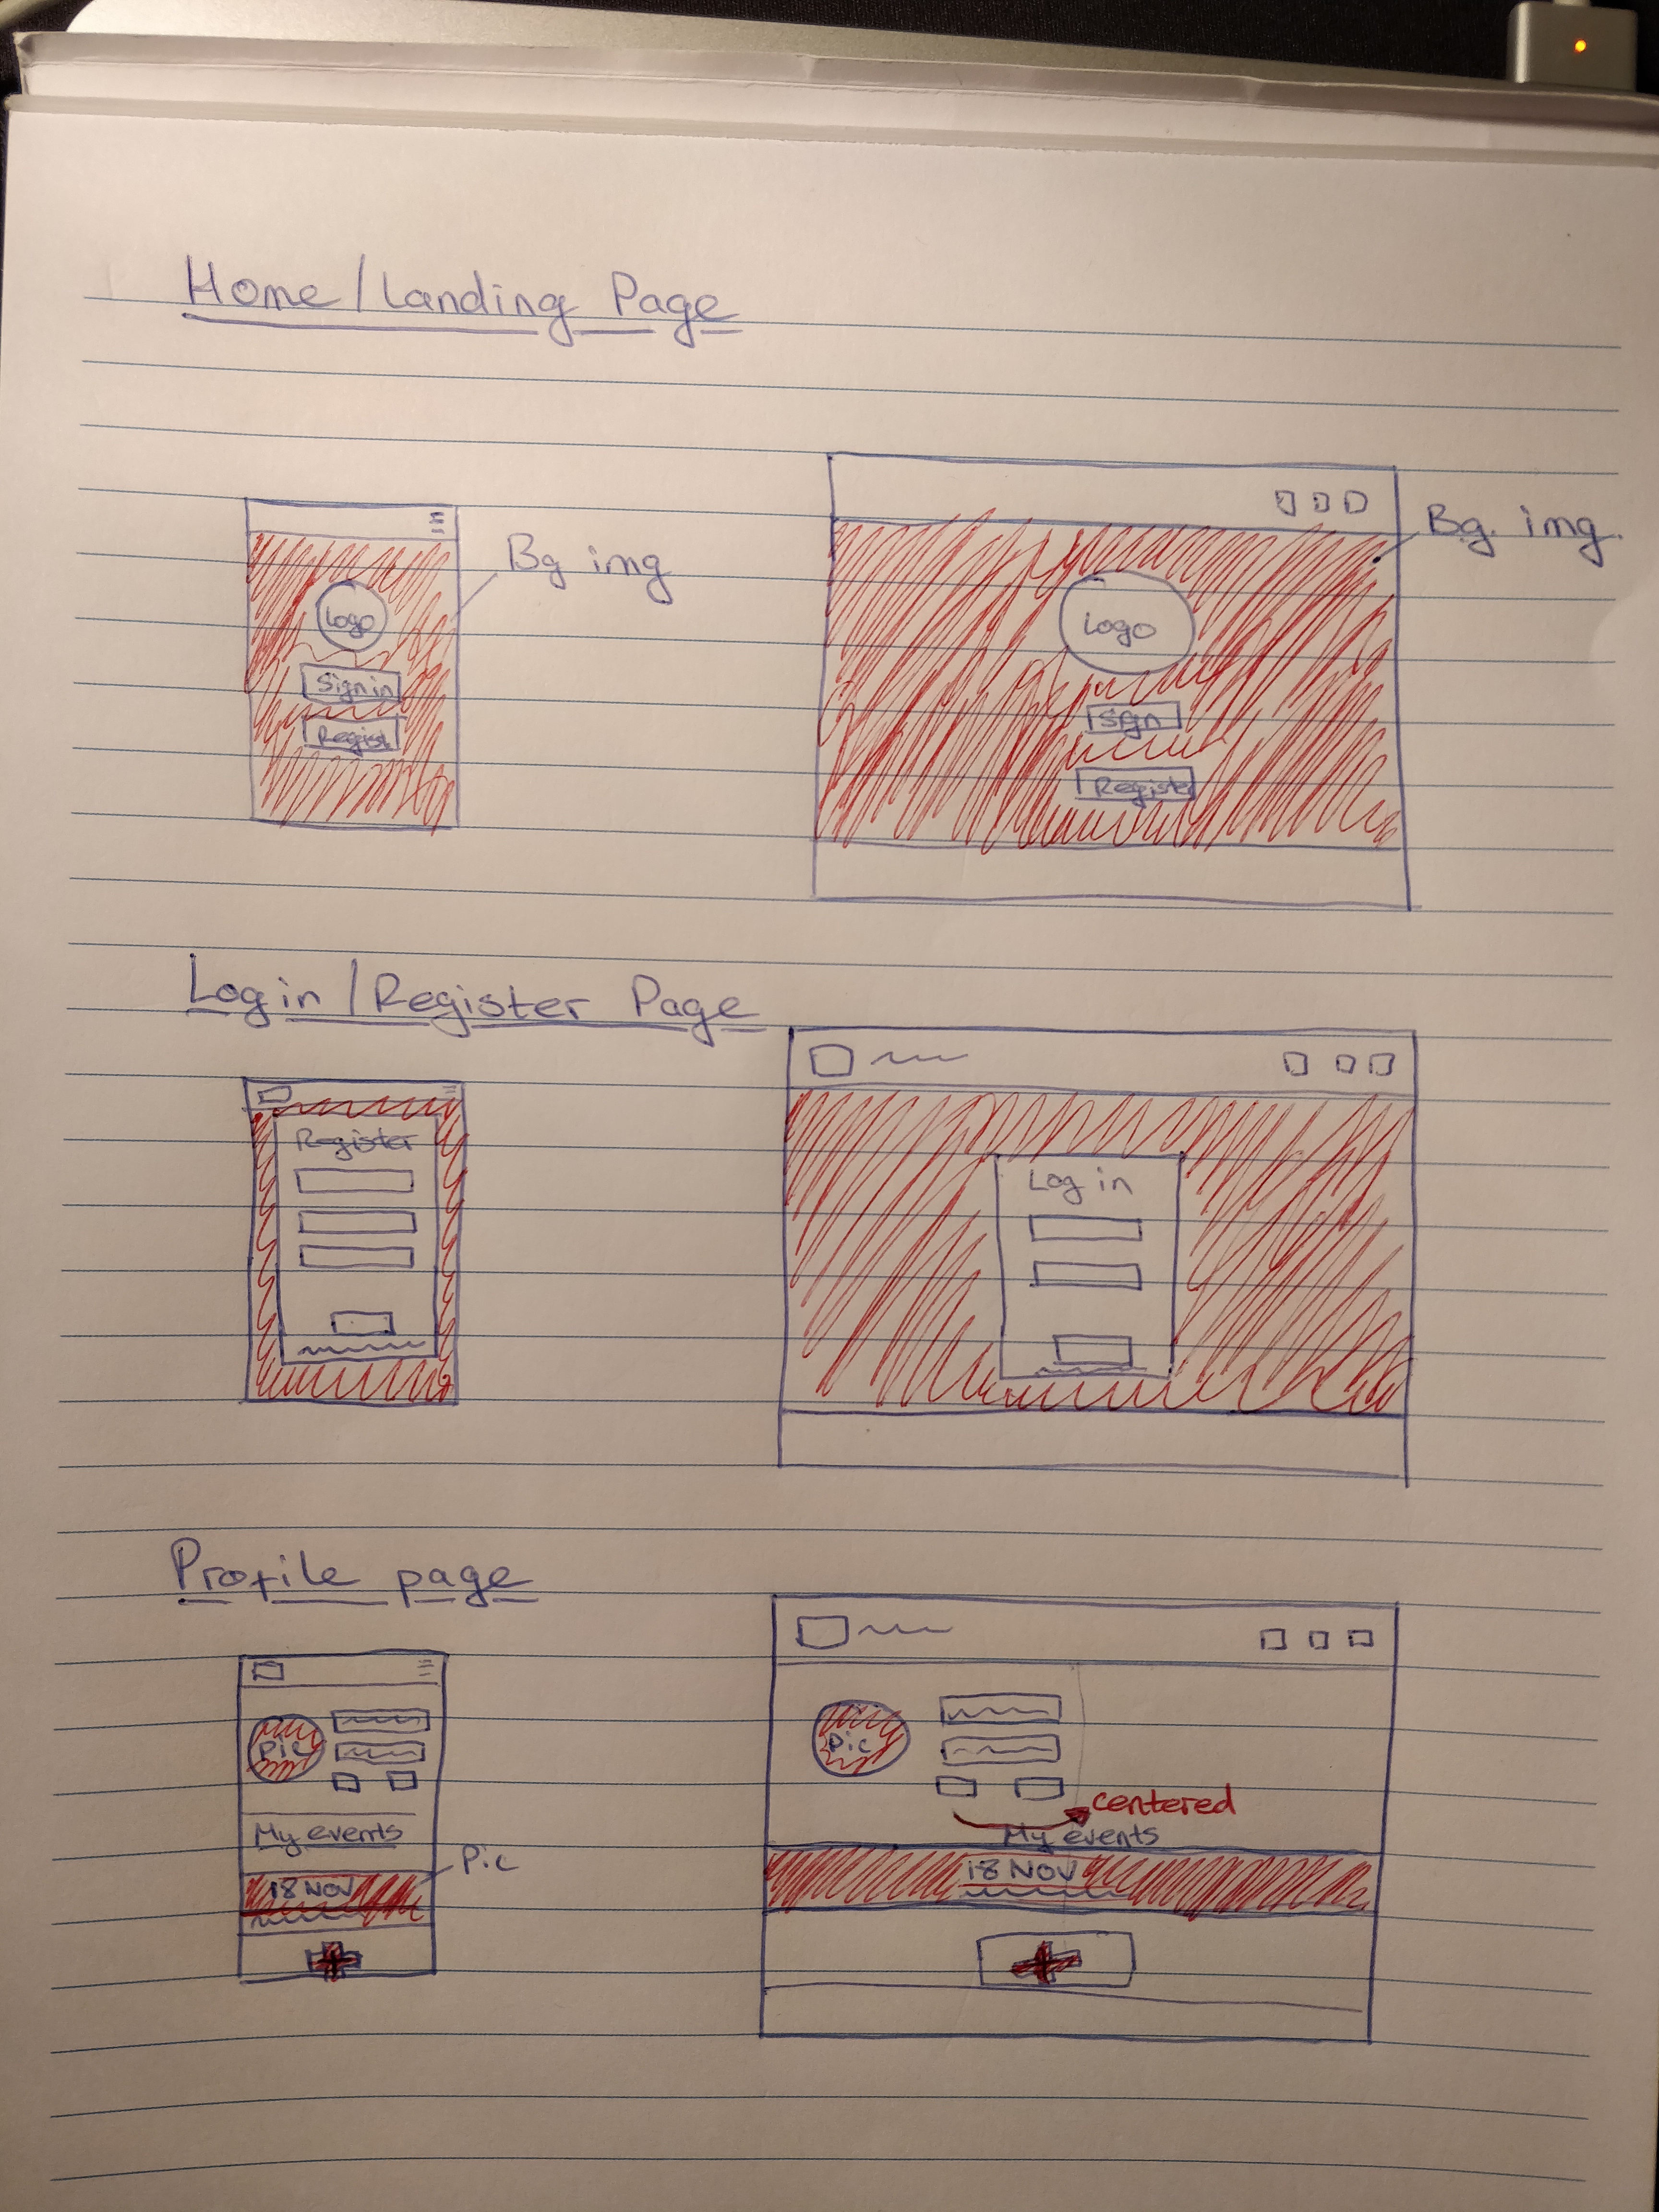 Home/Landing Page
Bg img
Logo
Sign in
Regist
Bg. img.
Logo
Sign
Register
Log in/Register Page
Register
Log in
Profile page
Pic
My events
18 NOV
Pic
Pic
centered
My events
18 NOV